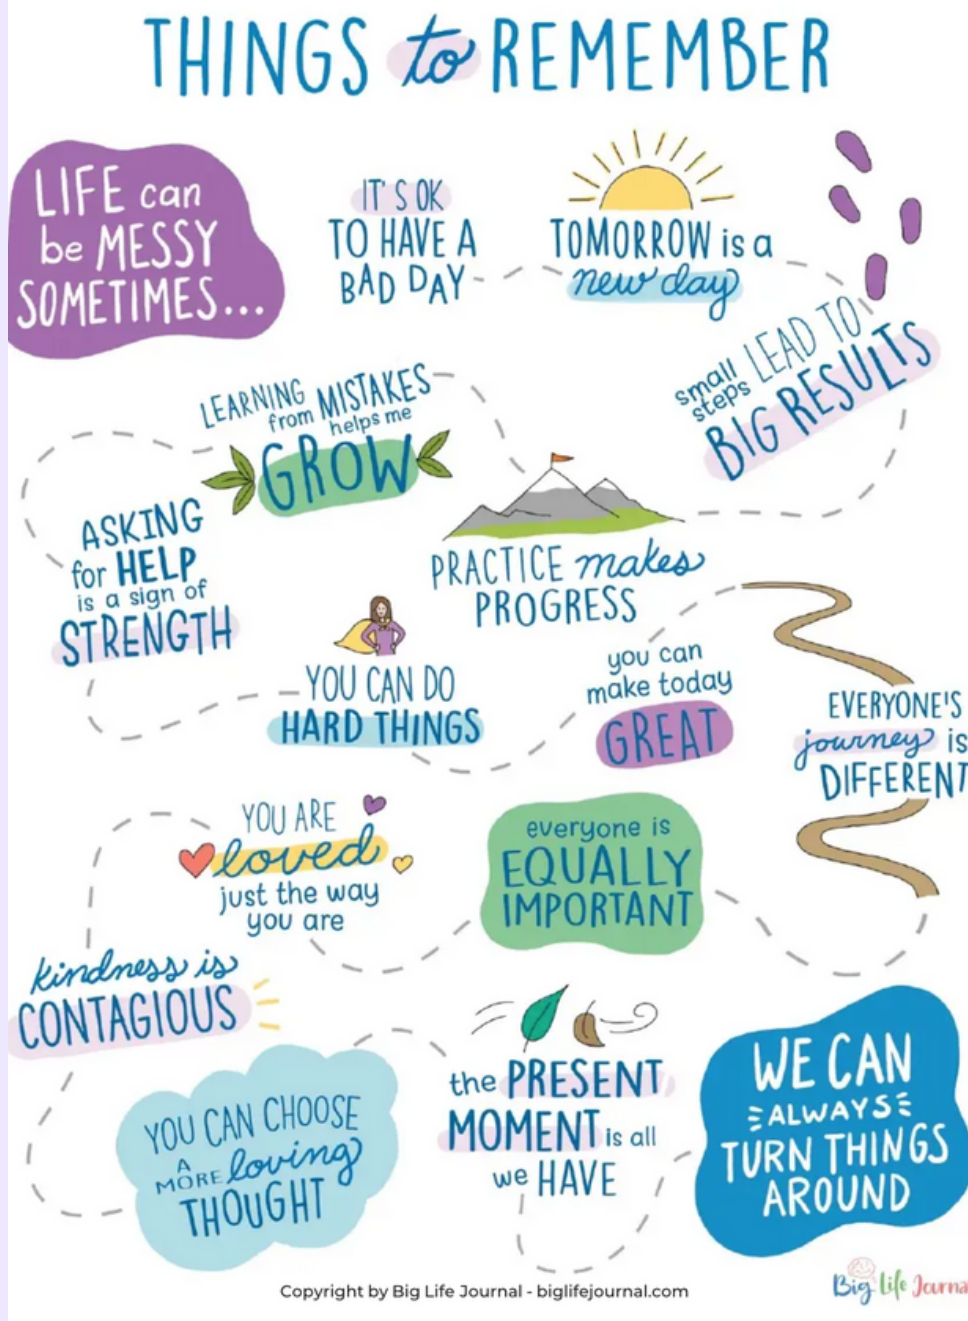 THINGS to REMEMBER
LIFE can
be MESSY
SOMETIMES...
IT'S OK
TO HAVE A
BAD DAY
TOMORROW is a
new day
small
steps LEAD TO
BIG RESULTS
PRACTICE makes
PROGRESS
LEARNING
from MISTAKES
helps me
GROW
ASKING
for HELP
is a sign of
STRENGTH
YOU CAN DO
HARD THINGS
you can
make today
GREAT
EVERYONE'S
journey is
DIFFERENT
everyone is
EQUALLY
IMPORTANT
YOU ARE
loved
just the way
you are
kindness is
CONTAGIOUS
YOU CAN CHOOSE
A
MORE loving
THOUGHT
the PRESENT
MOMENT is all
we HAVE
WE CAN
ALWAYS
TURN THINGS
AROUND
Copyright by Big Life Journal - biglifejournal.com
Big Life Journa